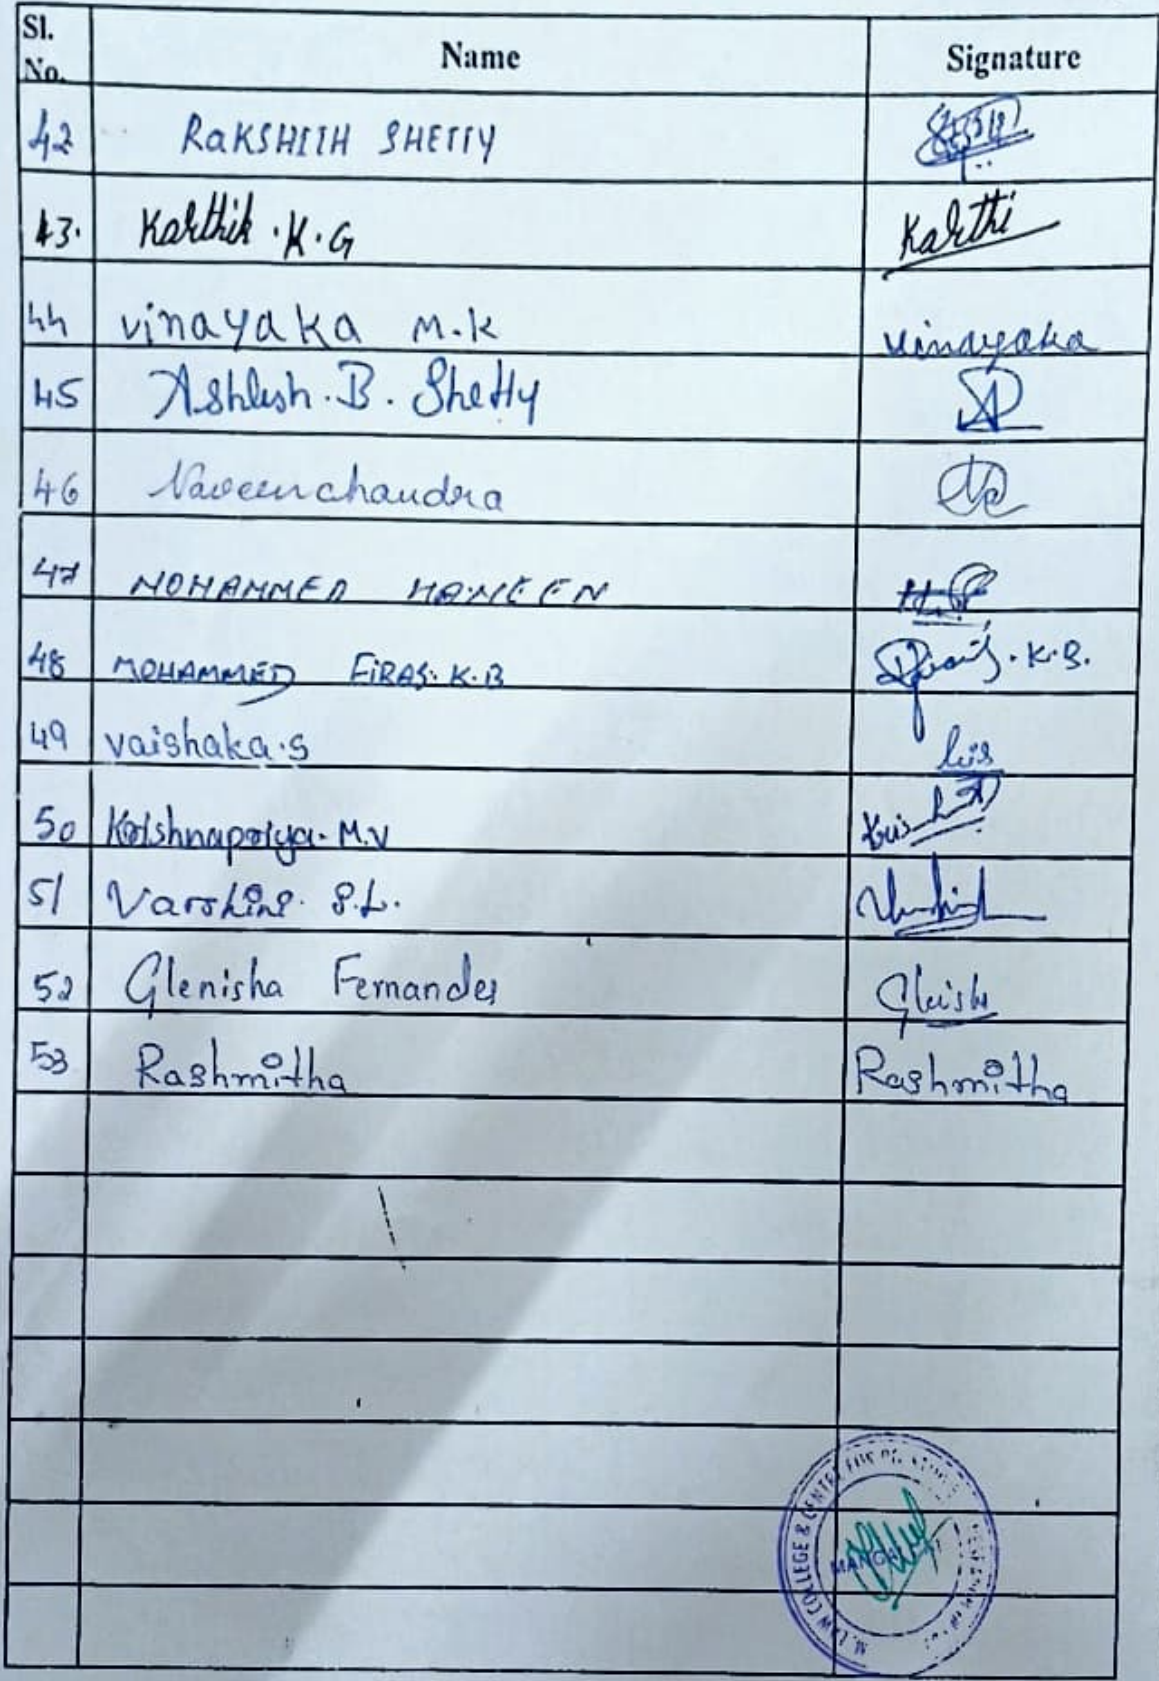 Sl. No. Name Signature
42 RAKSHITH SHETTY
43. Karthik.K.G Karthi
44 vinayaka M.K vinayaka
45 Ashlesh.B. Shetty
46 Naveenchandra
47 MOHAMMED HANEEN
48 MOHAMMED FIRAS.K.B K.B.
49 vaishaka.S
50 Krishnapriya.M.V
51 Varshini S.L.
52 Glenisha Fernandes
53 Rashmitha Rashmitha
LAW COLLEGE & CENTRE FOR